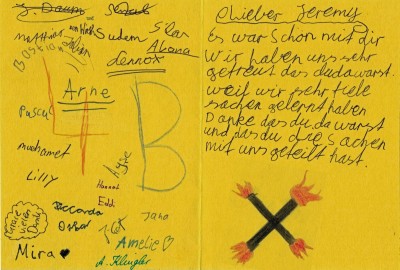 J. Daum
Sudem
Silar
Akana
Lennox
Arne
4 B
Pascu
muhamet
Lilly
Ayse
Hannah
Eddi
Riccarda
Oskar
Jana
vielen
Danke
Amelie
Mira
A. Klingler
Lieber Jeremy
Es war Schon mit dir
Wir haben uns sehr
gefreut das du da warst.
weil wir sehr fiele
sachen gelernt haben
Danke das du da warst
und das du die Sachen
mit uns geteilt hast.